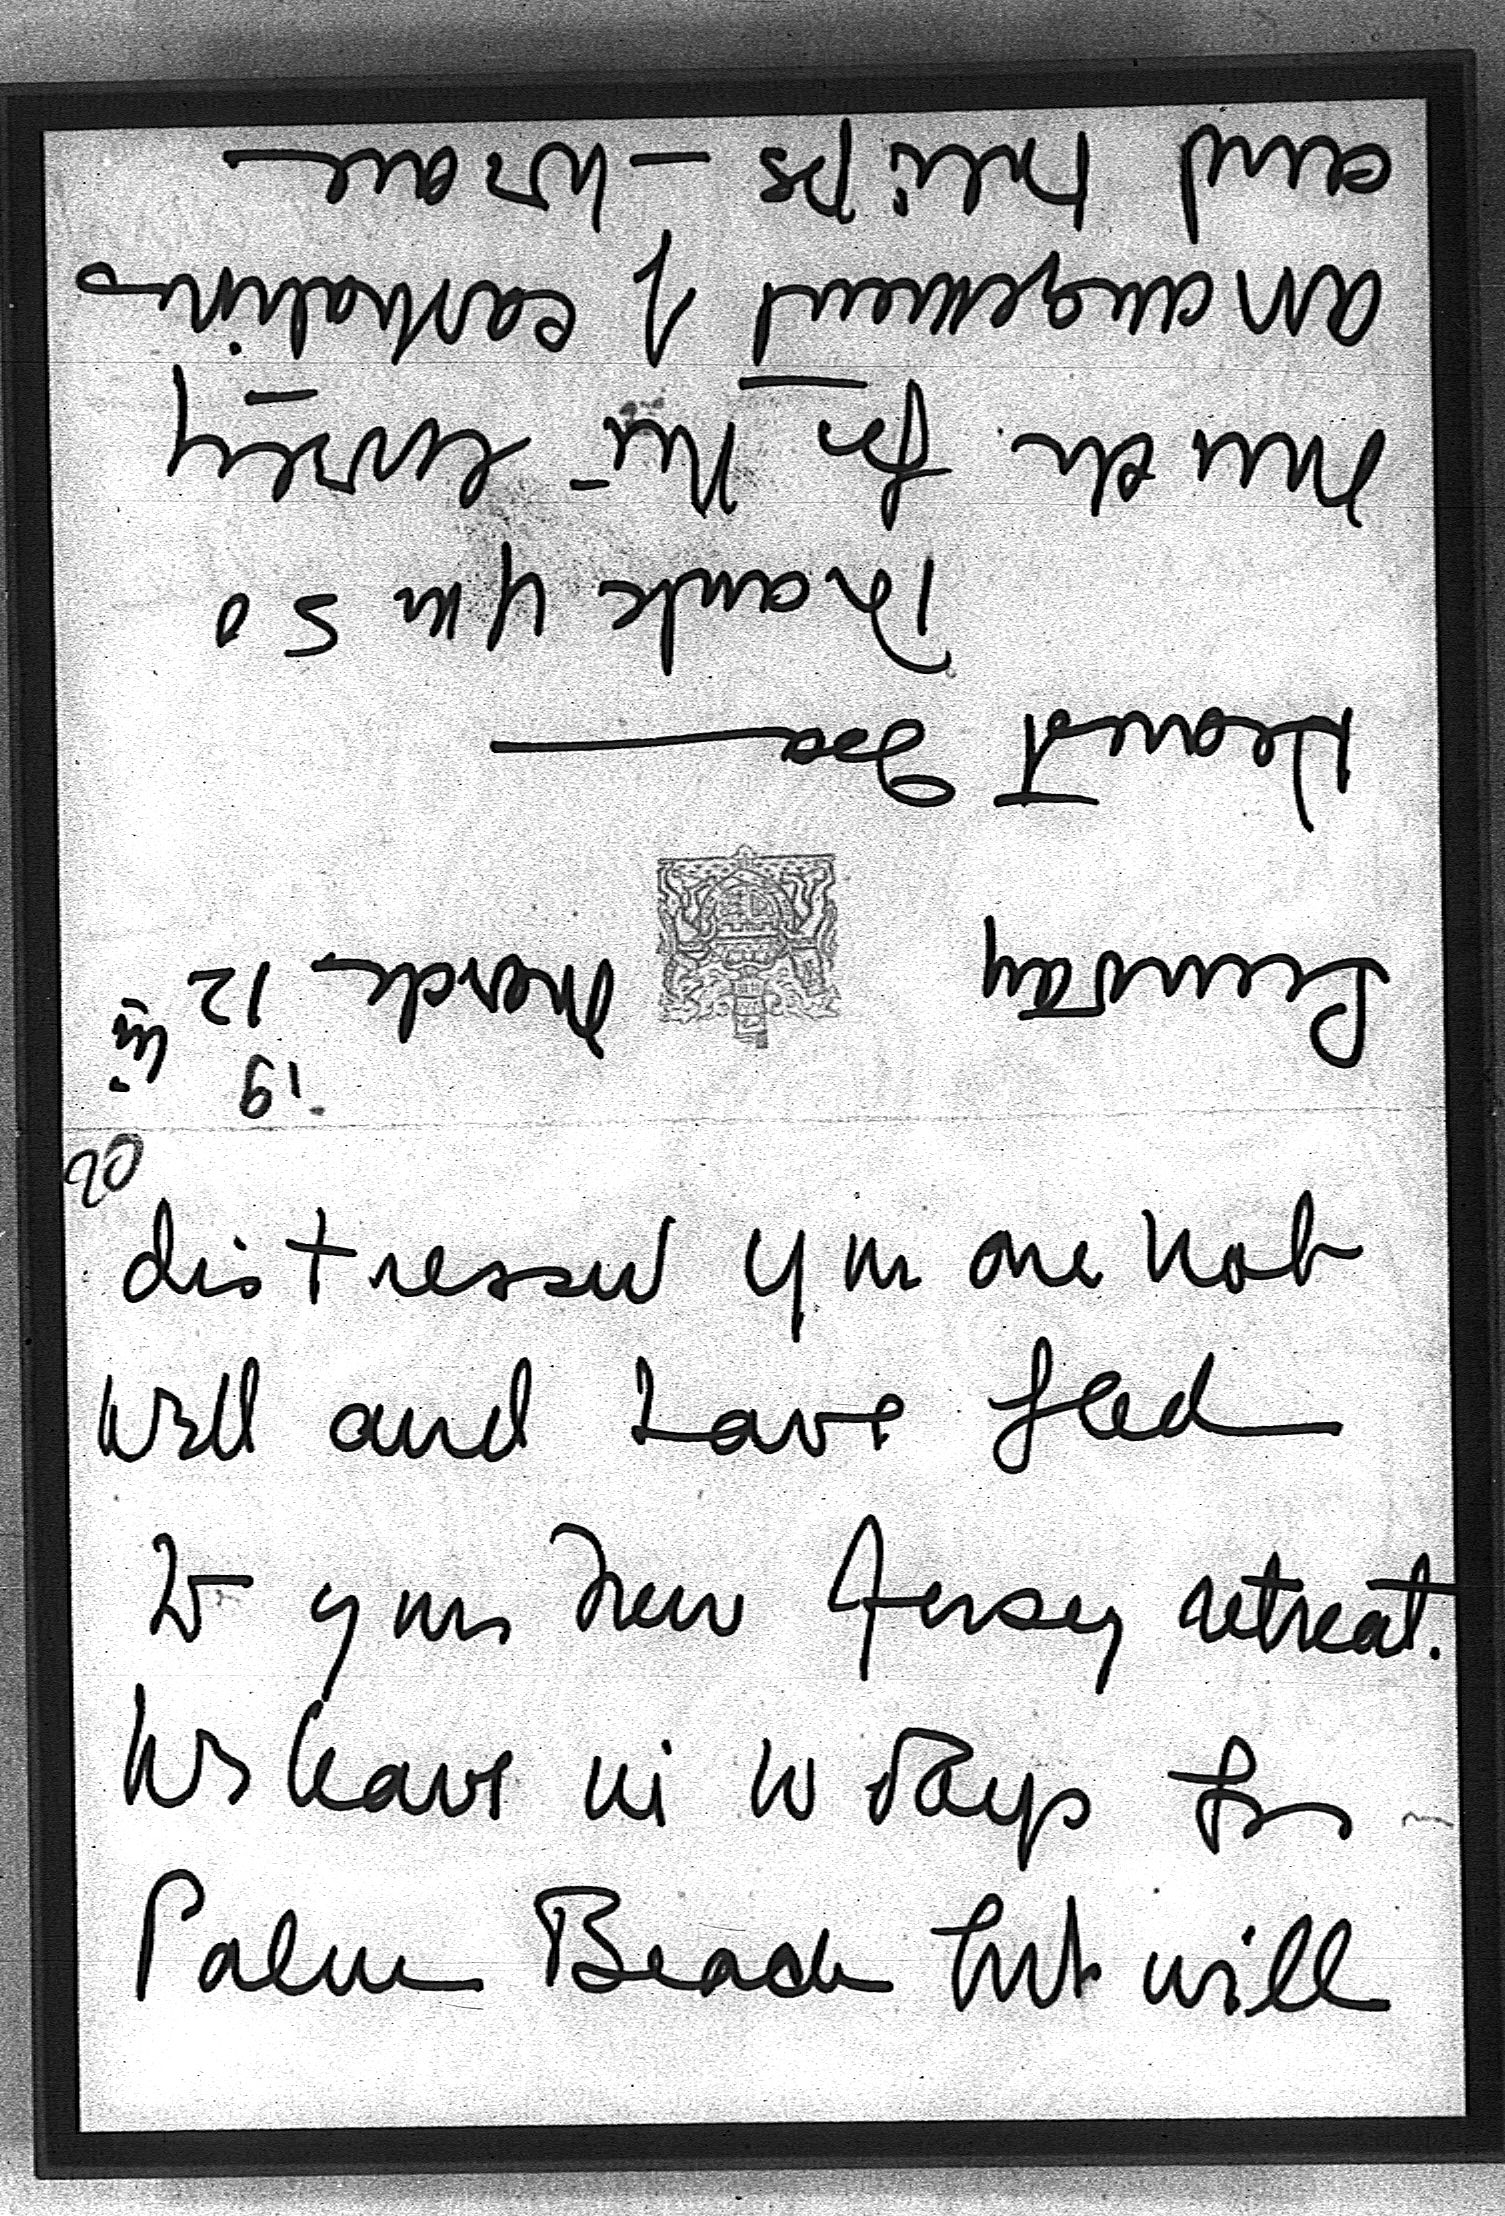 Sunday March 12
19
Dearest Isa
Thank you so
much for the lovely
arrangement of carnations
and tulips – We are
distressed you are not
well and have fled
to your New Jersey retreat.
We leave in 10 days for
Palm Beach but will